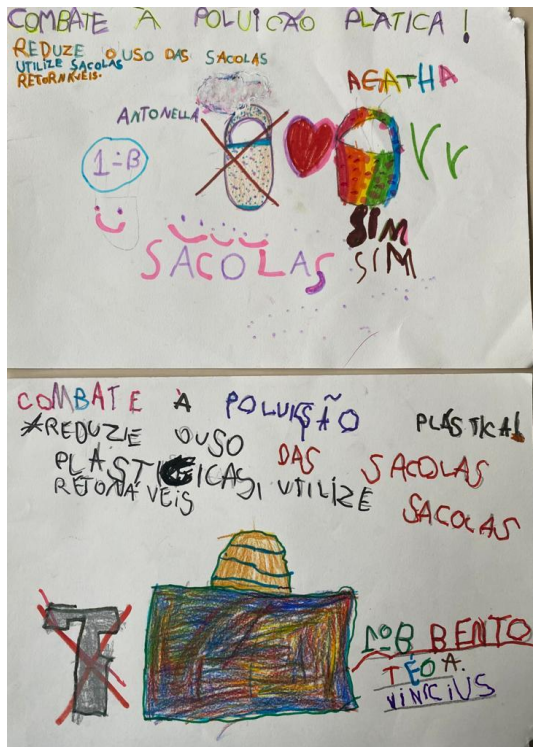 COMBATE À POLUIÇÃO PLATICA!
REDUZE O USO DAS SACOLAS
UTILIZE SACOLAS
RETORNAVEIS.
AGATHA
ANTONELLA
1-B
VV
SIM
SIM
SACOLAS
COMBATE À POLUIŞÃO PLÁSTICA!
*REDUZIE OUSO DAS SACOLAS
PLÁSTICICAS, UTILIZE SACOLAS
RETONÁVEIS
1º B BENTO
TÉO A.
VINÍCIUS